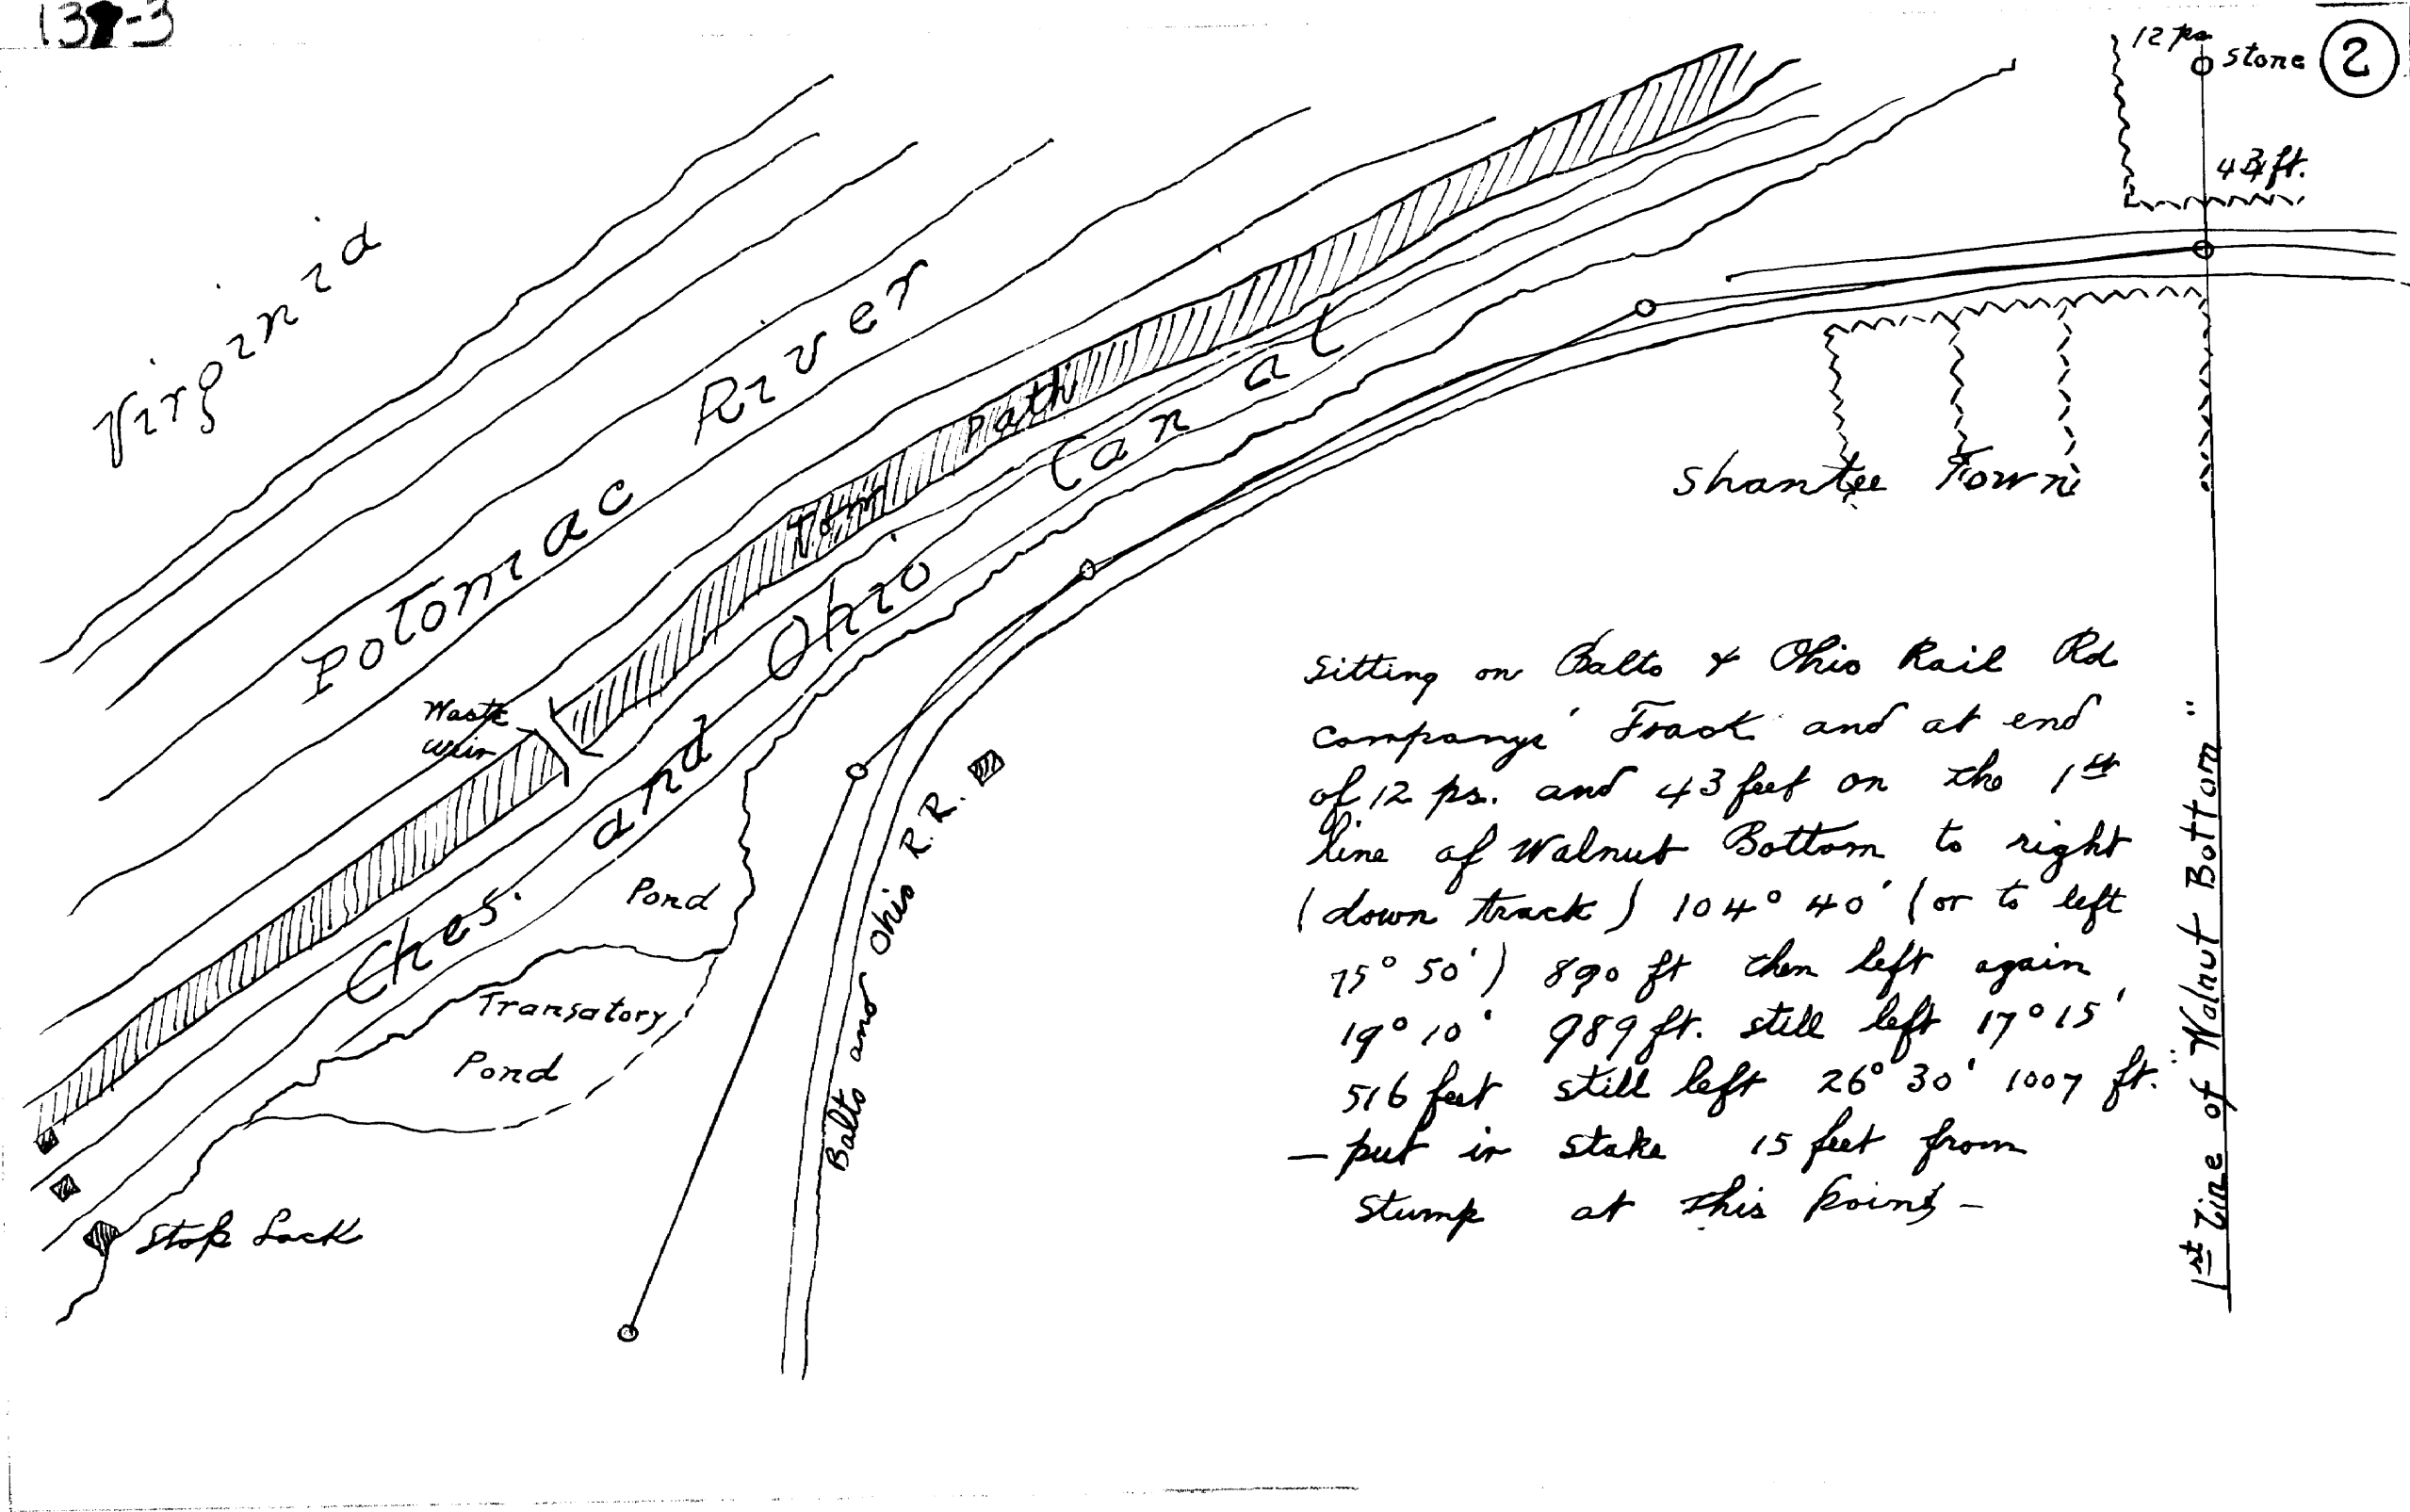 12 ps
stone
2
43 ft.
Virginia
Potomac River
Tow Path
Ches. and Ohio Canal
Waste
Weir
Shantee Town
Pond
Transatory
Pond
Stop Lock
Balto and Ohio R. R.
Sitting on Balto & Ohio Rail Rd
Companys' Track and at end
of 12 ps. and 43 feet on the 1st
line of Walnut Bottom to right
(down track) 104° 40' (or to left
75° 50') 890 ft then left again
19° 10' 989 ft. still left 17° 15'
516 feet still left 26° 30' 1007 ft.
— put in stake 15 feet from
stump at this point —
1st Line of "Walnut Bottom"